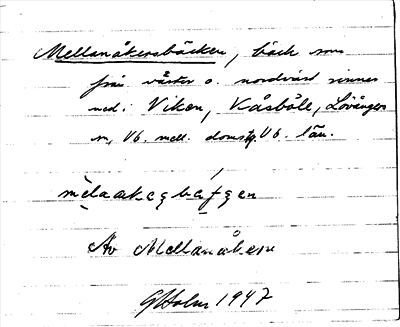 Mellanåkersbäcken, bäck som
från väster o. nordväst rinner
ned i Viken, Kåsböle, Lövångers
sn, Vb. mell. domsg. Vb. län.
Av Mellanåkern
GHolm 1947